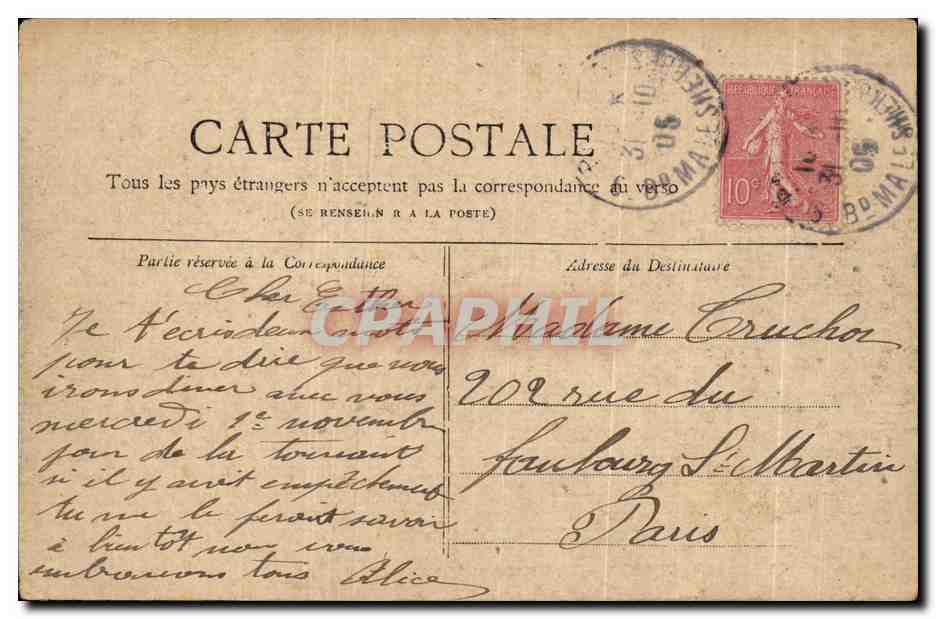 CARTE POSTALE
Tous les pays étrangers n'acceptent pas la correspondance au verso
(SE RENSEIGN R A LA POSTE)
Partie réservée à la Correspondance
Adresse du Destinataire
REPUBLIQUE FRANÇAISE
10c
31 -10
05
Bd MALESHERBES
31
05
Bd MALESHERBES
CPAPHIL
Cher Esther
Je t'écris deux mots
pour te dire que nous
irons diner avec vous
mercredi 1er novembre
jour de la toussaint
si il y avait empêchement
tu me le ferait savoir
à bientôt nous vous
embrassons tous Alice
Madame Truchot
202 rue du
faubourg St Martin
Paris